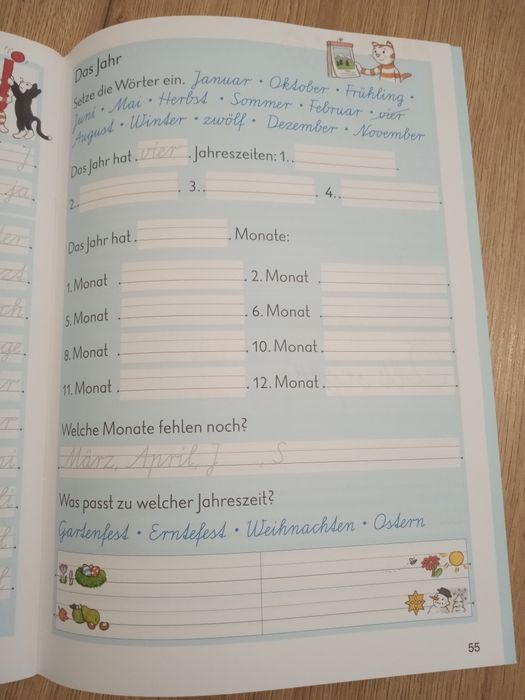 Das Jahr
Setze die Wörter ein. Januar • Oktober • Frühling •
Juni • Mai • Herbst • Sommer • Februar • vier
August • Winter • zwölf • Dezember • November
Das Jahr hat vier Jahreszeiten: 1.
2. 3. 4.
Das Jahr hat Monate:
1. Monat 2. Monat
5. Monat 6. Monat
8. Monat 10. Monat
11. Monat 12. Monat
Welche Monate fehlen noch?
März, April, J , S
Was passt zu welcher Jahreszeit?
Gartenfest • Erntefest • Weihnachten • Ostern
55